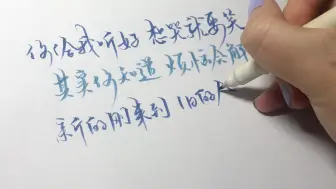 你给我听好 想哭就要笑
其实你知道 烦恼会解
新的刚来到 旧的